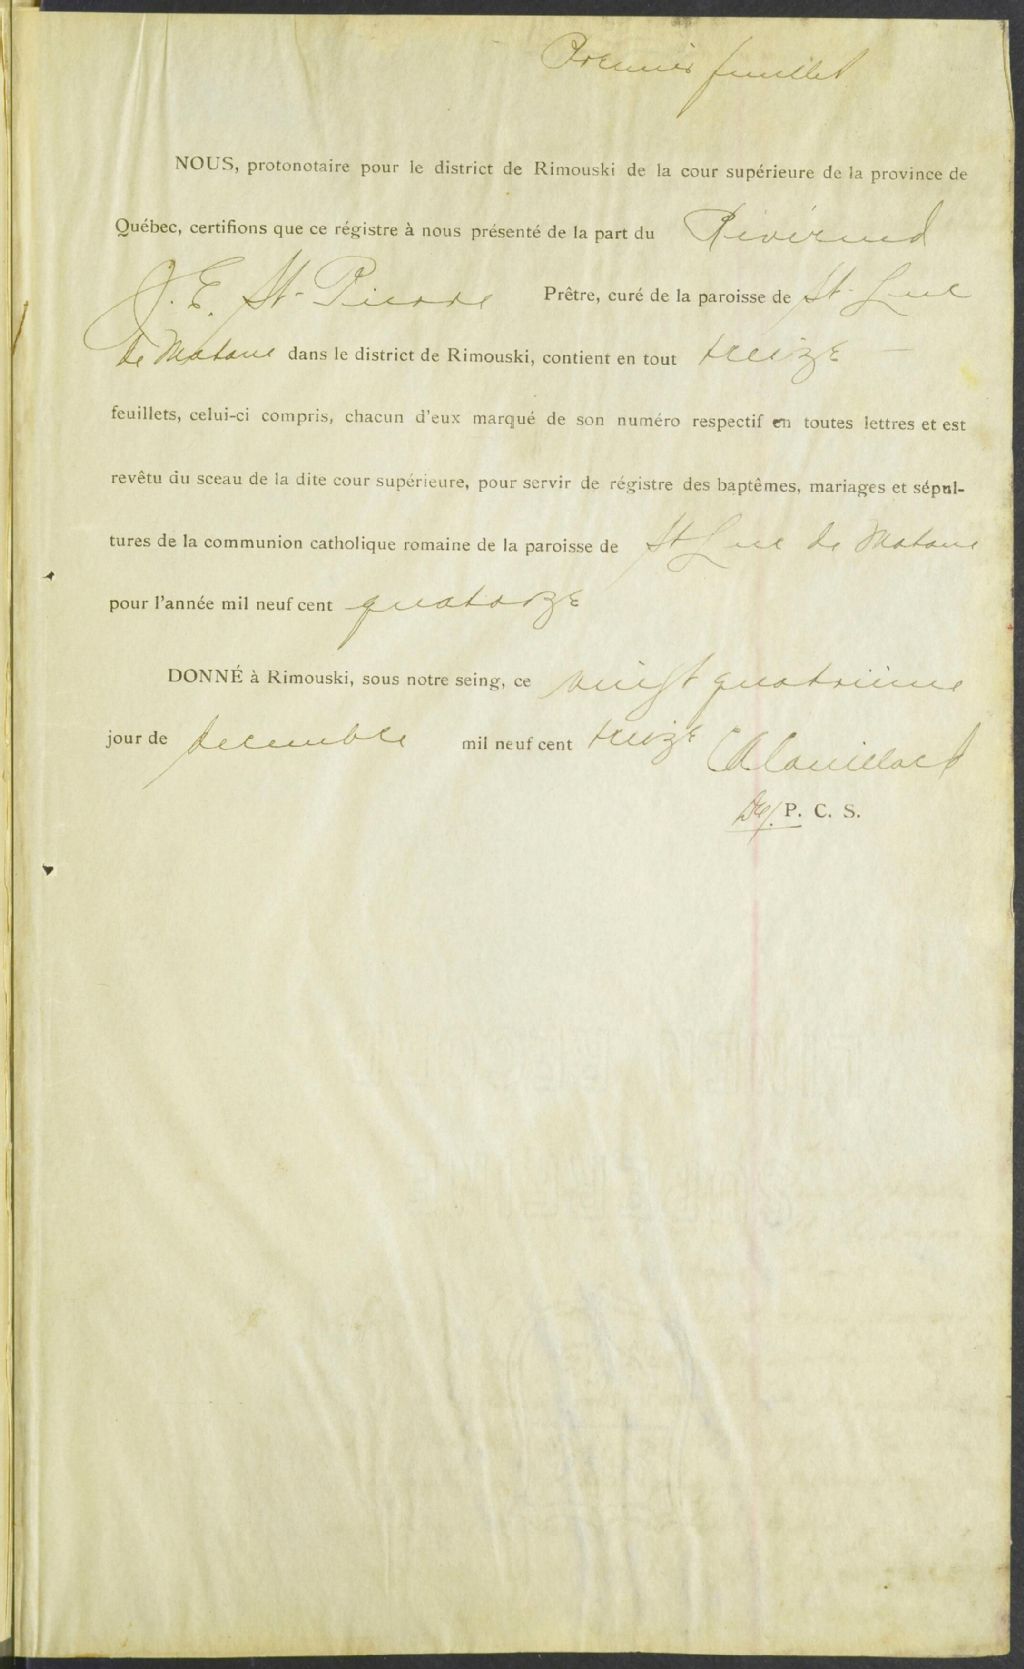 Premier feuillet
NOUS, protonotaire pour le district de Rimouski de la cour supérieure de la province de
Québec, certifions que ce régistre à nous présenté de la part du Révérend
J. E. St-Pierre Prêtre, curé de la paroisse de St-Luc
de Matane dans le district de Rimouski, contient en tout treize —
feuillets, celui-ci compris, chacun d'eux marqué de son numéro respectif en toutes lettres et est
revêtu du sceau de la dite cour supérieure, pour servir de régistre des baptêmes, mariages et sépul-
tures de la communion catholique romaine de la paroisse de St Luc de Matane
pour l'année mil neuf cent quatorze
DONNÉ à Rimouski, sous notre seing, ce vingt quatrième
jour de decembre mil neuf cent treize
P. C. S.